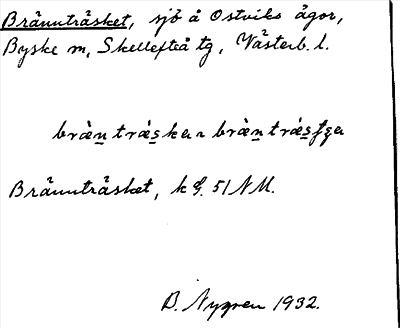 Brännträsket, sjö å Ostviks ägor,
Byske sn, Skellefteå tg, Västerb. l.
brä̀n trä́ska ~ brä̀n trä́sʃʒa
Brännträsket, k G. 51 NM.
B. Nygren 1932.